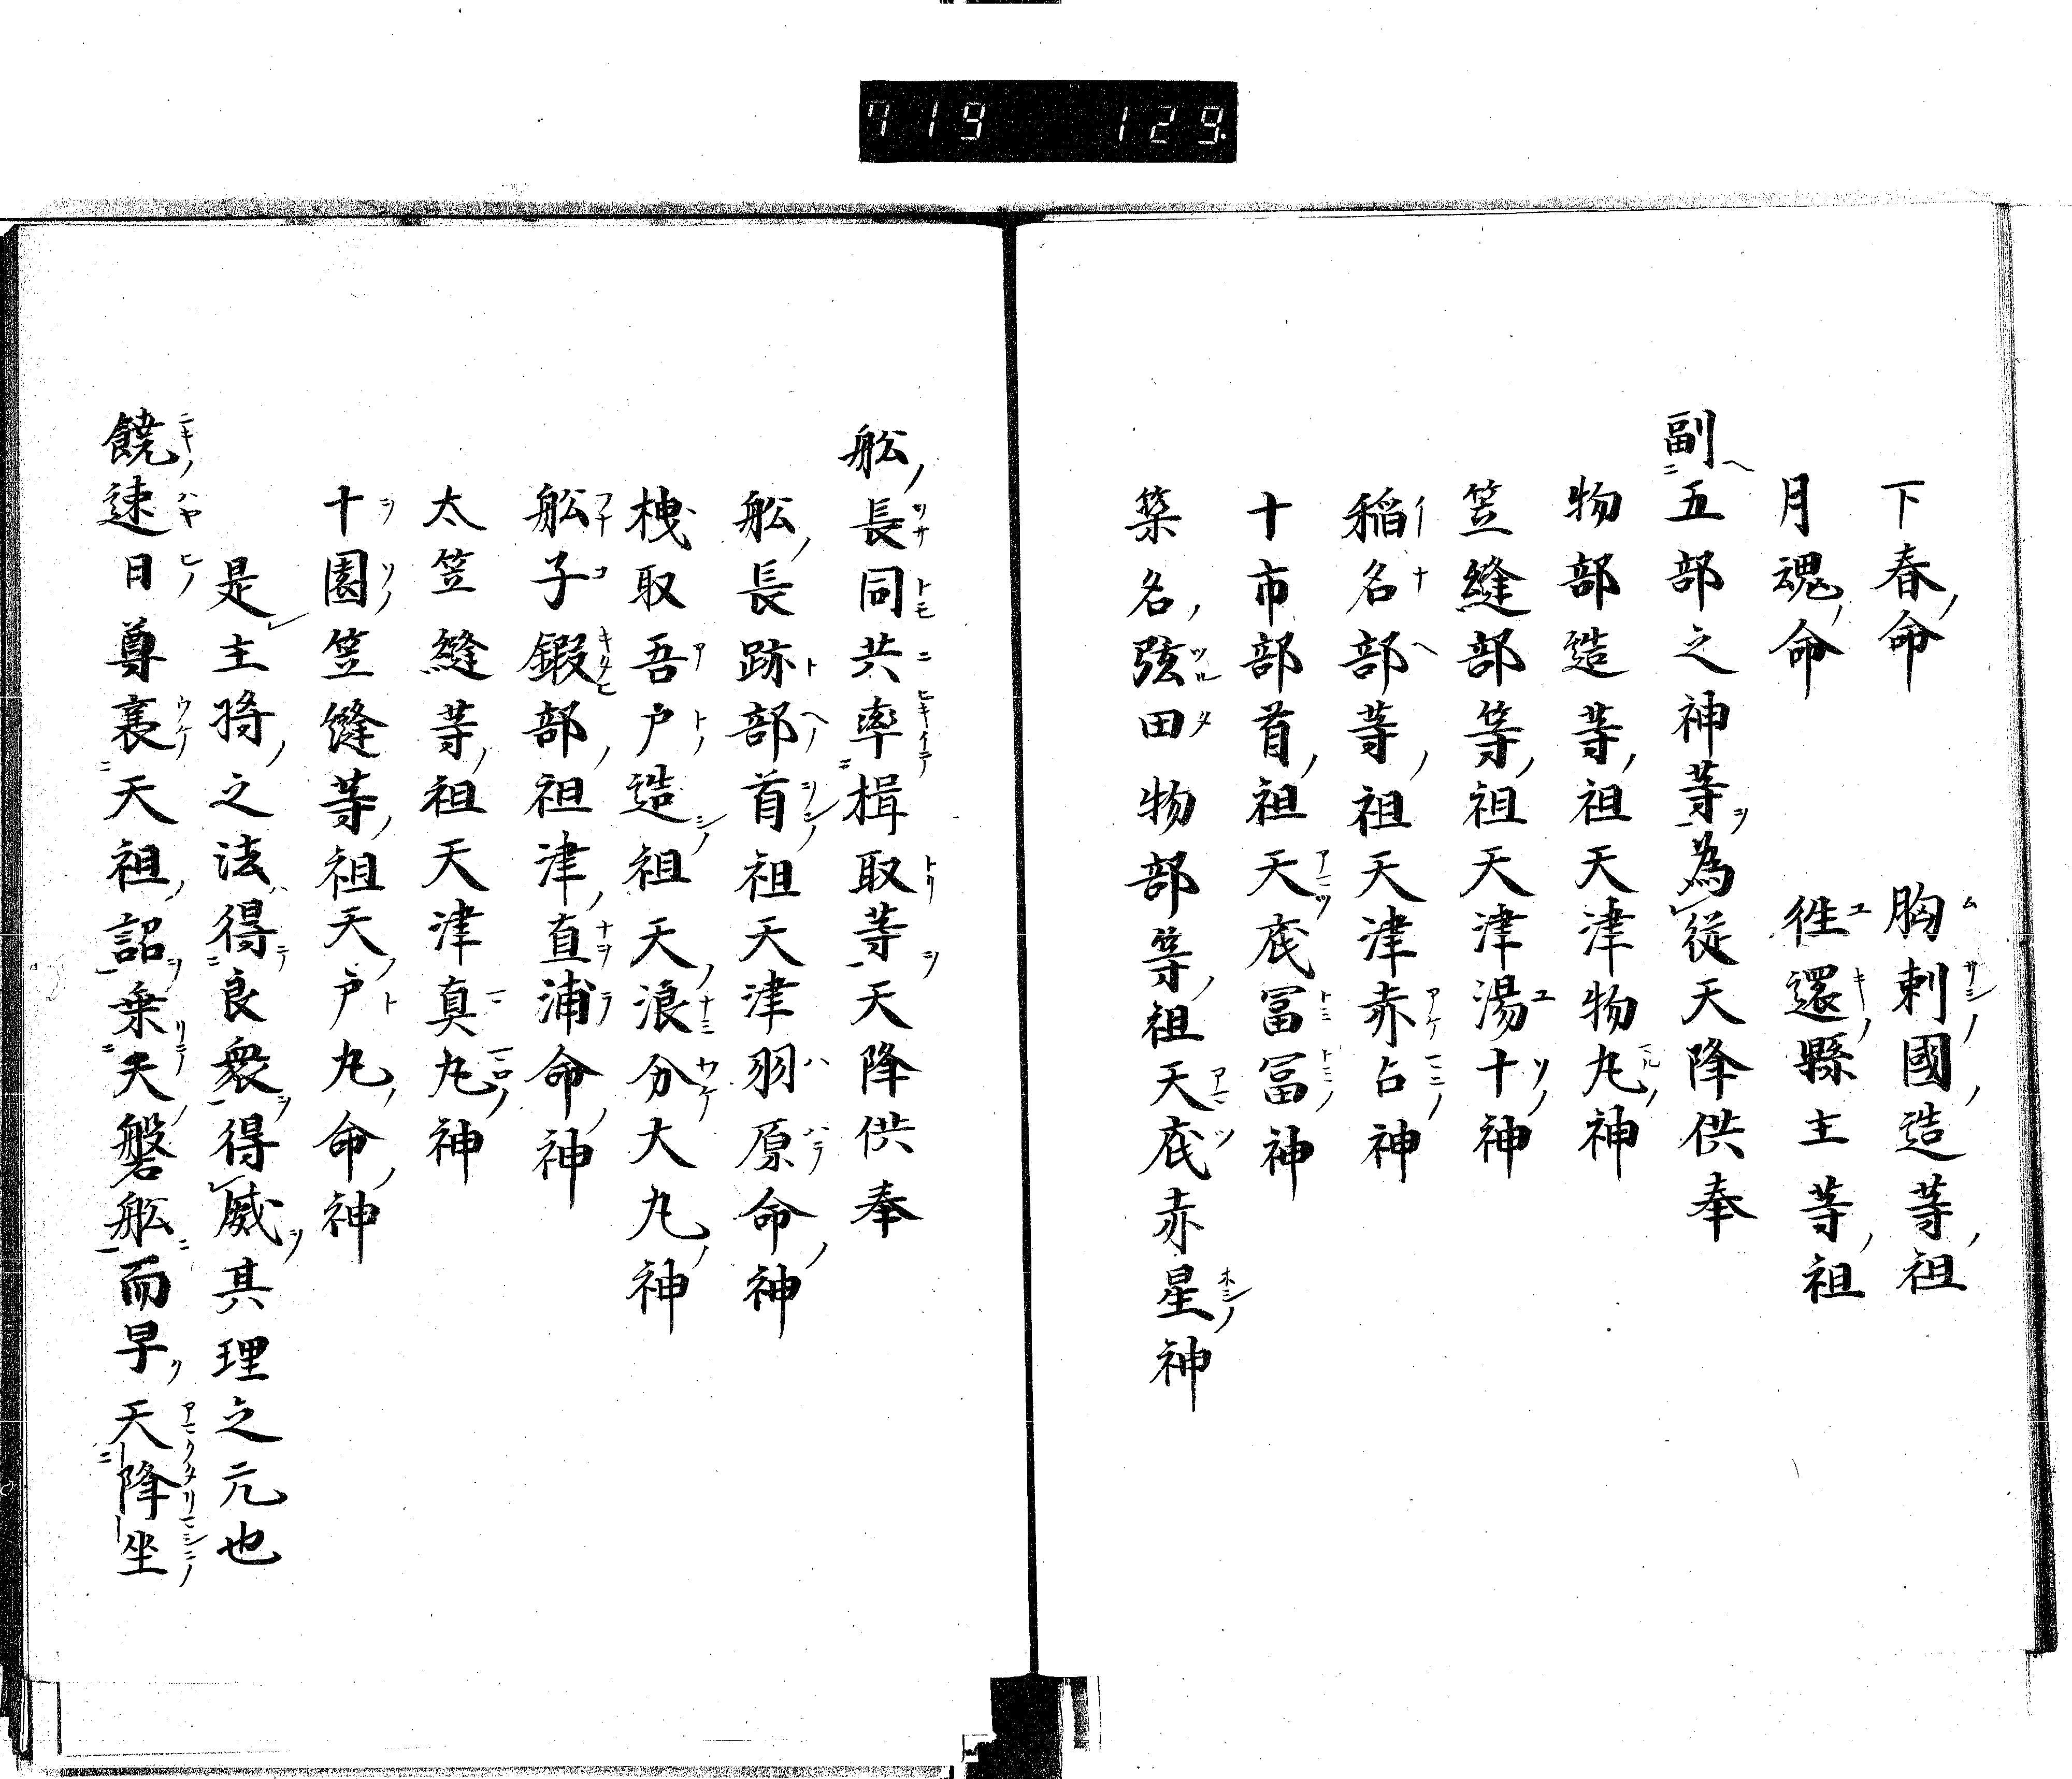 719 129
下春命 胸刺國造等祖
月魂命 徃還縣主等祖
副五部之神等為從天降供奉
物部造等祖天津物丸神
笠縫部等祖天津湯十神
稲名部等祖天津赤占神
十市部首祖天底冨冨神
築名弦田物部等祖天底赤星神
舩長同共率楫取等天降供奉
舩長跡部首祖天津羽原命神
栧取吾戸造祖天浪分大丸神
舩子鍜部祖津直浦命神
太笠縫等祖天津真丸神
十園笠縫等祖天戸丸命神
是主将之法得良衆得威其理之元也
饒速日尊裏天祖詔乗天磐舩而早天降坐